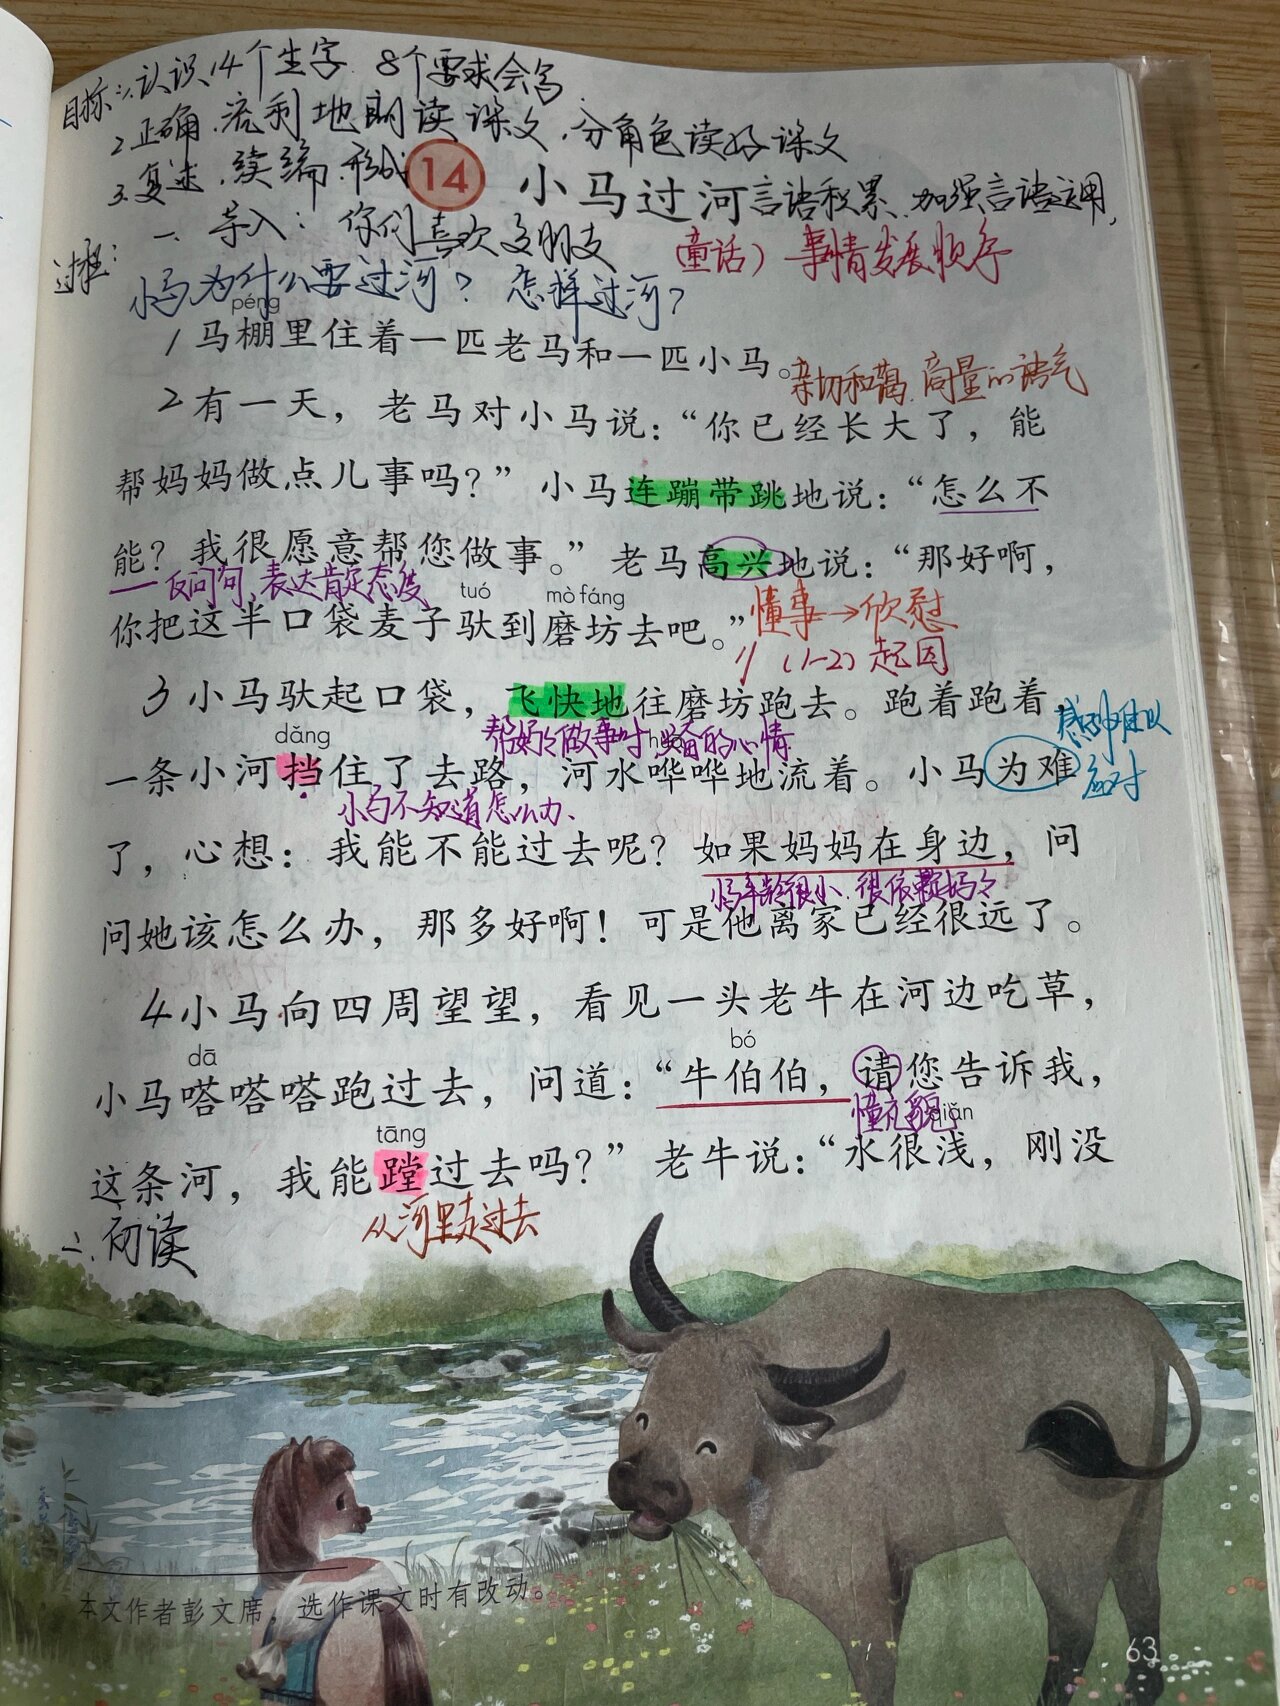 目标:1.认识14个生字.8个要求会写
2.正确.流利地朗读课文.分角色读好课文
3.复述.续编.形成 言语积累.加强言语运用,
14 小马过河
过程: 一、导入: 你们喜欢交朋友
(童话) 事情发展顺序
小马为什么要过河? 怎样过河?
péng
1马棚里住着一匹老马和一匹小马。
亲切和蔼.商量的语气
2有一天，老马对小马说：“你已经长大了，能
帮妈妈做点儿事吗？”小马连蹦带跳地说：“怎么不
能？我很愿意帮您做事。”老马高兴地说：“那好啊，
—反问句,表达肯定态度
tuó mò fáng
你把这半口袋麦子驮到磨坊去吧。”
懂事→欣慰
// (1-2) 起因
3小马驮起口袋，飞快地往磨坊跑去。跑着跑着，
帮妈妈做事时 的心情
感到难以
应对
dǎng
一条小河挡住了去路，河水哗哗地流着。小马为难
小马不知道怎么办、
了，心想：我能不能过去呢？如果妈妈在身边，问
小马年龄很小.很依赖妈妈
问她该怎么办，那多好啊！可是他离家已经很远了。
4小马向四周望望，看见一头老牛在河边吃草，
dā bó
小马嗒嗒嗒跑过去，问道：“牛伯伯，请您告诉我，
懂礼貌
tāng qiǎn
这条河，我能蹚过去吗？”老牛说：“水很浅，刚没
从河里走过去
二、初读
本文作者彭文席，选作课文时有改动。
63